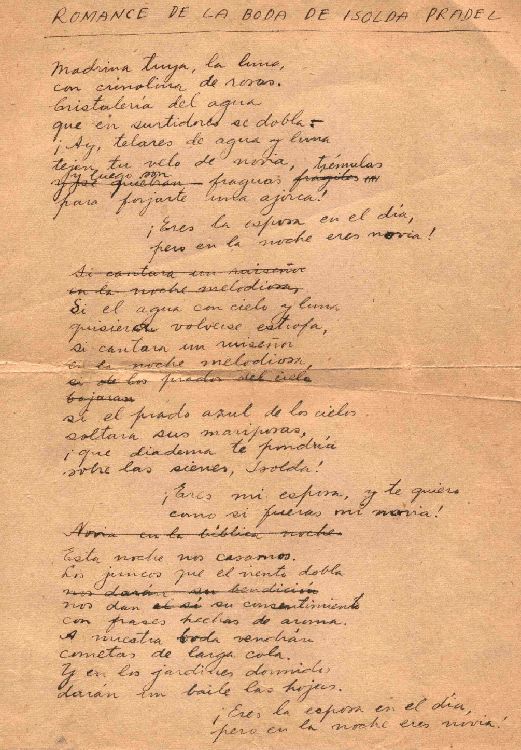 ROMANCE DE LA BODA DE ISOLDA PRADEL
Madrina tuya, la luna,
con crinolina de rosas.
Cristalería del agua
que en surtidores se dobla.
¡Ay, telares de agua y luna
tejen tu velo de novia,
y luego son trémulas
y se quiebran fraguas fragiles
para forjarte una ajorca!
¡Eres la esposa en el día,
pero en la noche eres novia!
Si cantara un ruiseñor
en la noche melodiosa,
Si el agua con cielo y luna
quisiera volverse estrofa,
si cantara un ruiseñor
en la noche melodiosa,
si de los prados del cielo
bajaran
si el prado azul de los cielos
soltara sus mariposas,
¡que diadema te pondría
sobre las sienes, Isolda!
¡Eres mi esposa, y te quiero
como si fueras mi novia!
Novia en la bíblica noche
Esta noche nos casamos.
Los juncos que el viento dobla
nos darán su bendición
nos dan el sí su consentimiento
con frases hechas de aroma.
A nuestra boda vendrán
cometas de larga cola.
Y en los jardines dormidos
darán un baile las hojas.
¡Eres la esposa en el día,
pero en la noche eres novia!